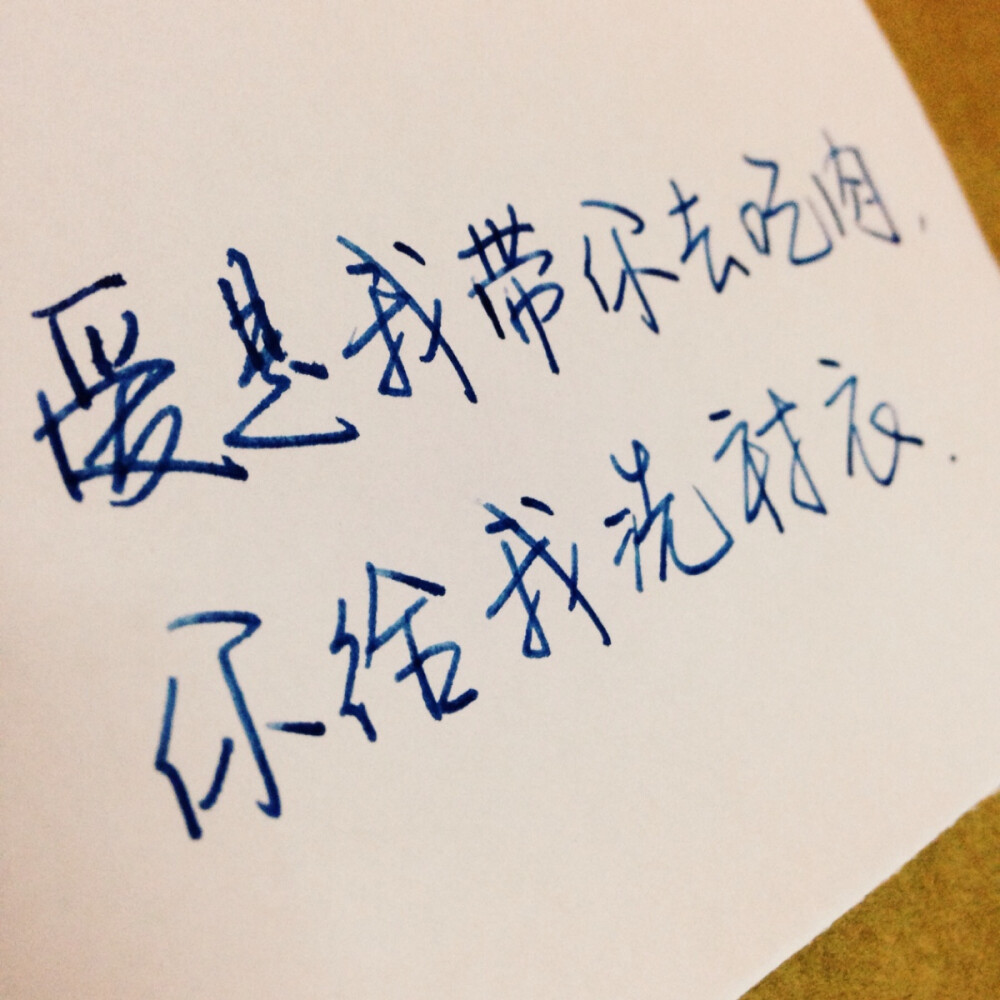 爱是我带你去吃肉，
你给我洗衬衣．